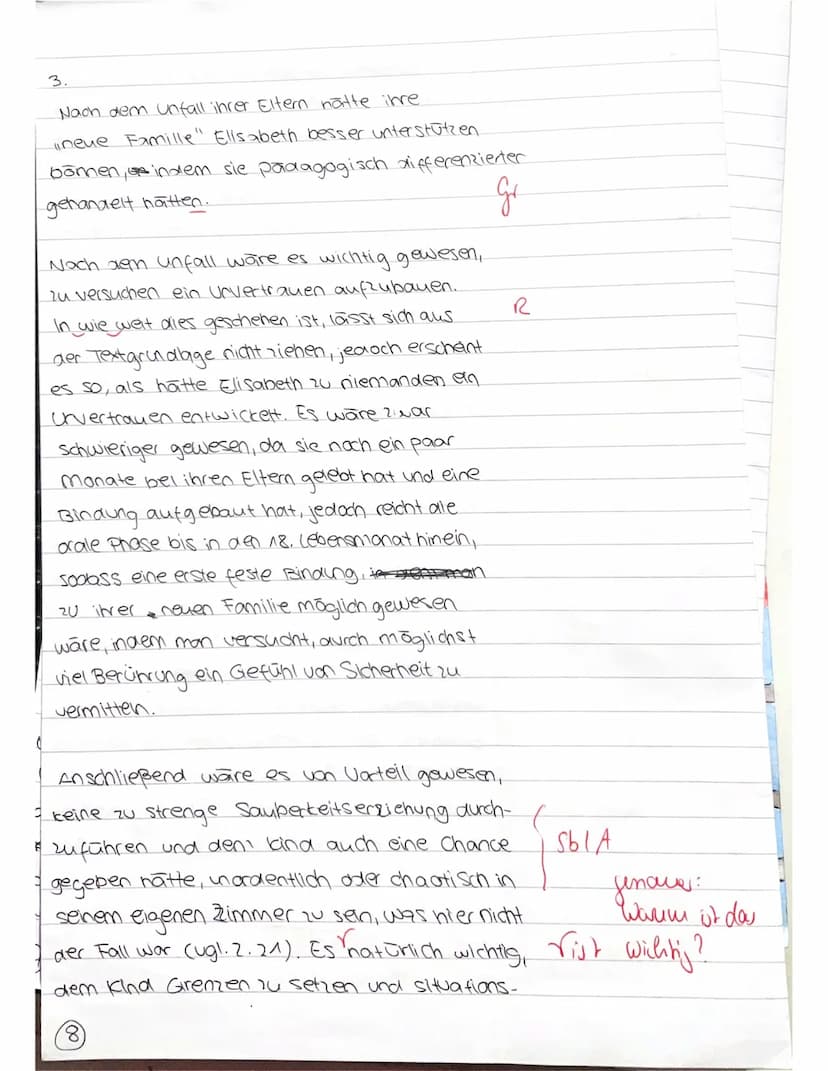 3.
Nach dem Unfall ihrer Eltern hätte ihre
„neue Familie" Elisabeth besser unterstützen
können, indem sie pädagogisch differenzierter
gehandelt hätten.
Gr
Nach dem Unfall wäre es wichtig gewesen,
zu versuchen ein Urvertrauen aufzubauen.
In wie weit dies geschehen ist, lässt sich aus R
der Textgrundlage nicht ziehen, jedoch erscheint
es so, als hätte Elisabeth zu niemanden ein
Urvertrauen entwickelt. Es wäre zwar
schwieriger gewesen, da sie noch ein paar
Monate bei ihren Eltern gelebt hat und eine
Bindung aufgebaut hat, jedoch reicht die
orale Phase bis in den 18. Lebensmonat hinein,
sodass eine erste feste Bindung,
zu ihrer neuen Familie möglich gewesen
wäre, indem man versucht, durch möglichst
viel Berührung ein Gefühl von Sicherheit zu
vermitteln.
Anschließend wäre es von Vorteil gewesen,
keine zu strenge Sauberkeitserziehung durch-
zuführen und dem Kind auch eine Chance Sb/A
gegeben hätte, unordentlich oder chaotisch in genauer:
seinem eigenen Zimmer zu sein, was hier nicht Warum ist das
der Fall war (vgl. Z. 21). Es natürlich wichtig, ist wichtig?
dem Kind Grenzen zu setzen und situations-
8